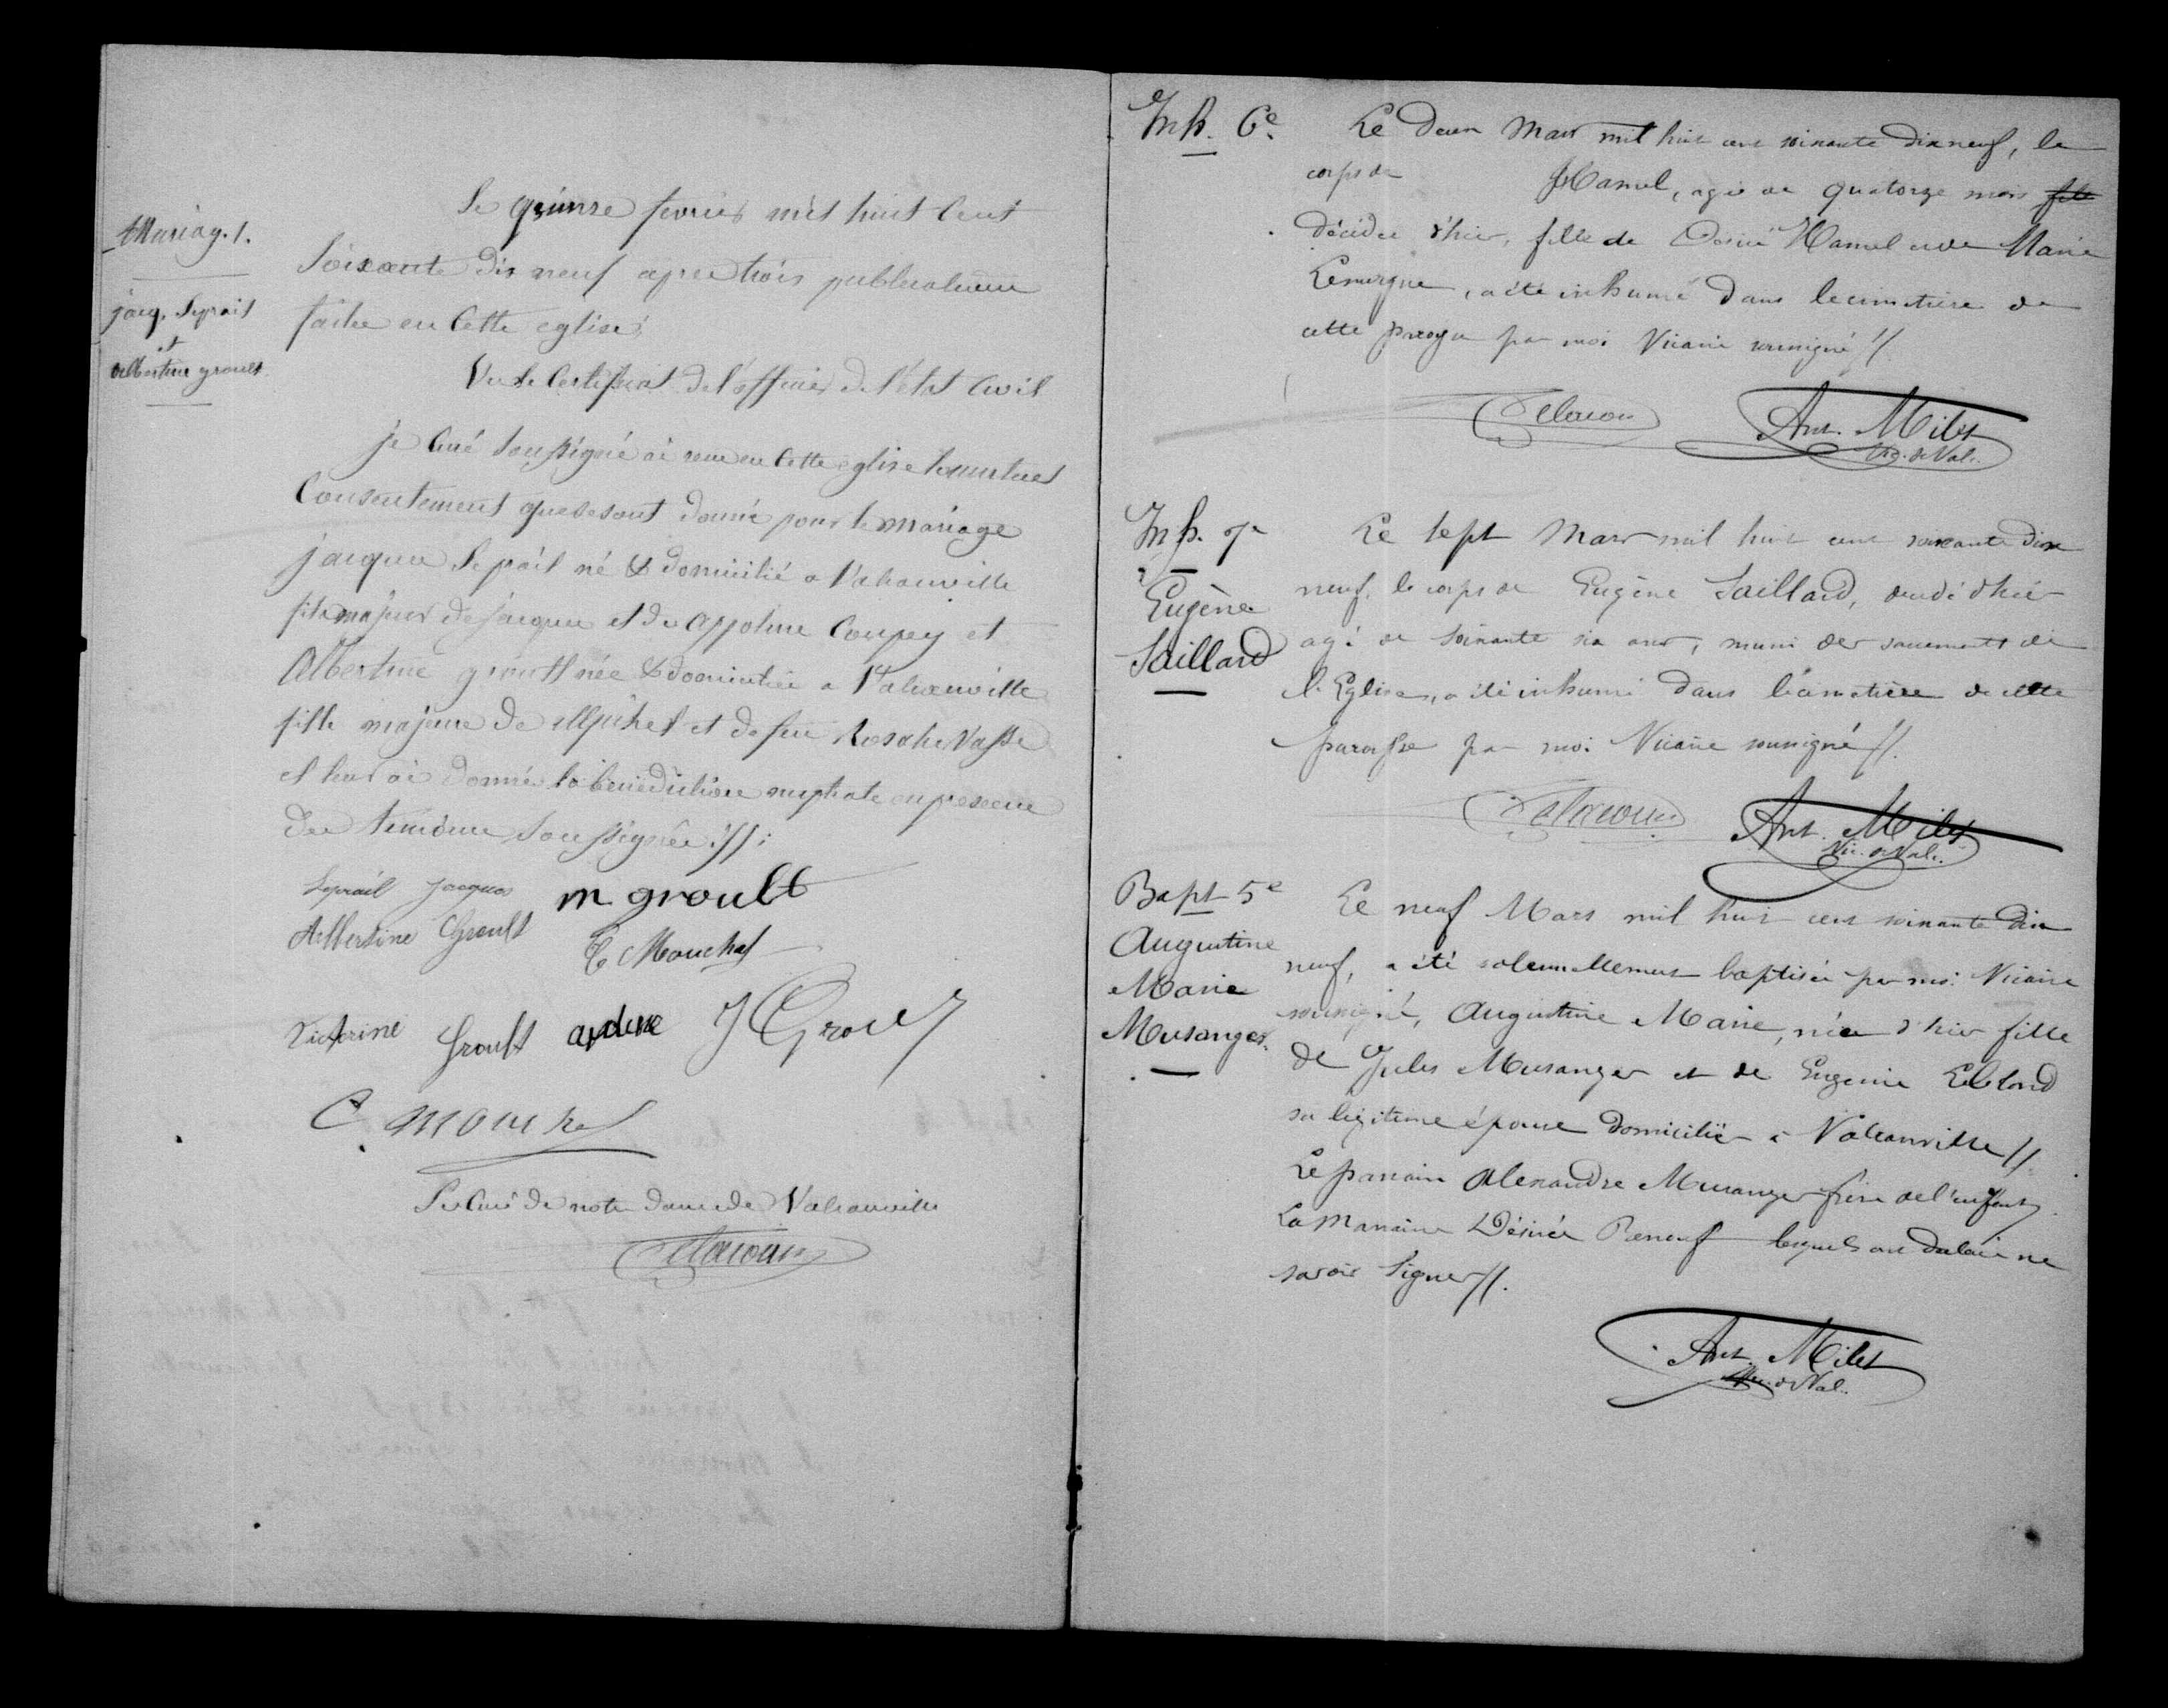 Mariag. 1.
jacq. Leprail
et
albertine groult
Le quinze fevrier mil huit cent
Soixante dix neuf apres trois publications
faites en cette eglise;
Vu le Certificat de l'officier de l'état civil
je Curé Soussigné ai recu en cette eglise le mutuel
Consentement que se sont donné pour le mariage
jacques Leprail né & domicilié a Valcanville
fils majeur de jacques et de appoline Coupey et
Albertine groult née & domiciliée a Valcanville
fille majeure de Michel et de feue Rosalie Vasse
et leur ai donné la bénédiction nuptiale en presence
des temoins Soussignés .//:
Leprail jacques m groult
Albertine Groult C Mouchel
Victorine Groult J Groult
C. mouchel
Le Curé de notre dame de Valcanville
Inh. 6e
Le deux Mars mil huit cent soixante dix neuf, le
corps de Hamel, agée de quatorze mois fille
décédée d'hier, fille de Désiré Hamel et de Marie
, a été inhumé dans le cimetière de
cette paroisse par moi Vicaire soussigné //.
Ant. Milet
Vic. de Val.
Inh. 7e
Eugène
Saillard
Le sept Mars mil huit cent soixante dix
neuf, le corps de Eugène Saillard, décédé d'hier
agé de soixante six ans, muni des sacrements de
l'Eglise, a été inhumé dans le cimetière de cette
paroisse par moi Vicaire soussigné //.
Ant. Milet
Vic. de Val.
Bapt 5e
Augustine
Marie
Mesanger.
Le neuf Mars mil huit cent soixante dix
neuf, a été solennellement baptisée par moi Vicaire
soussigné, Augustine Marie, née d'hier fille
de Jules Mesanger et de Eugenie Leblond
sa légitime épouse domiciliés à Valcanville //.
Le parrain Alexandre Mesanger frère de l'enfant
La Marraine Désirée lesquels ont déclaré ne
savoir signer //.
Ant. Milet
Vic. de Val.